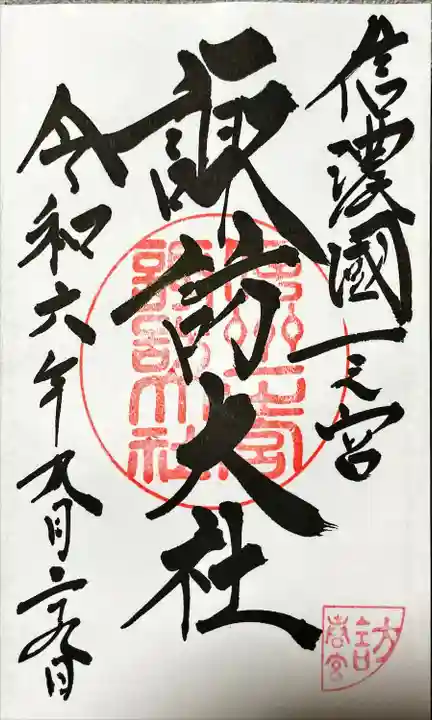 信濃國一之宮
諏訪大社
令和六年九月二十九日
訪
春宮